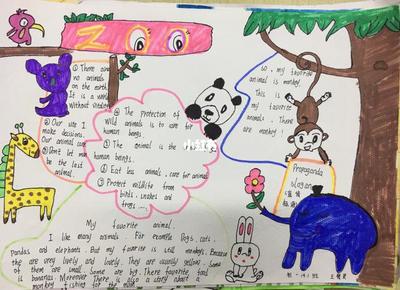 ZOO
① There are
no animals
on the earth
It is a world
without vitality
② Our use I
make decisions.
Our animal
③ Don't let me
be the last
animal.
① The protection of
wild animals is to care for
human beings.
② The animal is the
human beings.
③ Eat less animals, care for animals
④ Protect wildlife from
birds, snakes and
frogs
so, my favorite
animal is monkey.
This is
my favorite
animals. There
are monkey!
Propaganda
slogan
My favorite animal.
I like many animals. For example Dogs, cats,
Pandas and elephants. But my favorite is still monkeys. Because
the are very lively and lovely. They are usually yellow. Some
of them are small. Some are big. There favorite food
is bananas. Moreover There is also a story about a
monkey fishing for the